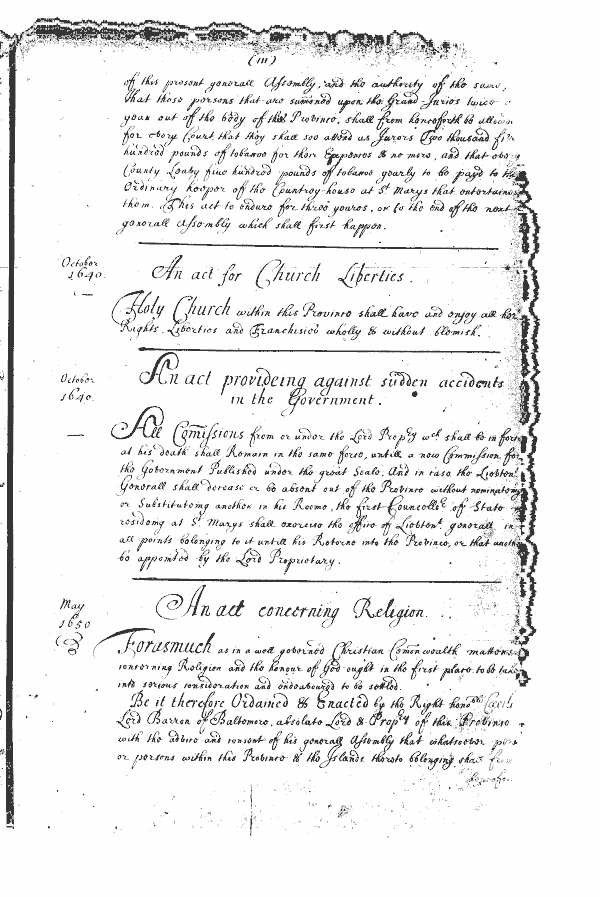 (111)
of this present generall Assembly, and the authority of the same,
that those persons that are sumoned upon the Grand Juries twice
year out of the body of the Province, shall from henceforth be allowed
for every Court that they shall soe attend as Jurors Two thousand five
hundred pounds of tobacco for their Expences & no more, and that every
County Leavy five hundred pounds of tobacco yearly to be paid to the
Ordinary keeper of the Countrey-house at St. Marys that entertaines
them. This act to endure for three yeares, or to the end of the next
generall Assembly which shall first happen.
October
1640.
An act for Church Liberties.
Holy Church within this Province shall have and enjoy all her
Rights, Liberties and Franchises wholly & without blemish.
October
1640.
An act provideing against sudden accidents
in the Government.
All Comissions from or under the Lord Propry wch shall be in force
at his death shall Remain in the same force, untill a new Commission for
the Government Published under the great Seale. And in case the Lieutent.
Generall shall decease or be absent out of the Province without nominateing
or Substituteing another in his Roome, the first Councellr. of State
resideing at St. Marys shall exercise the office of Lieutent. generall in
all points belonging to it untill his Retorne into the Province, or that another
be appointed by the Lord Proprietary.
May
1650
An act concerning Religion.
Forasmuch as in a well governed Christian Comon wealth matters
concerning Religion and the honour of God ought in the first place to be taken
into serious consideration and endeavoured to be setled.
Be it therefore Ordained & Enacted by the Right honoble Cecilius
Lord Barron of Baltemore, absolute Lord & Propry of this Province
with the advice and consent of his generall Assembly that whatsoever
or persons within this Province & the Islands thereto belonging shall from